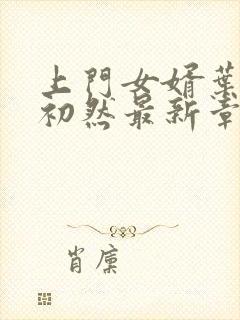 上門女婿葉
初然最新章
肖廣